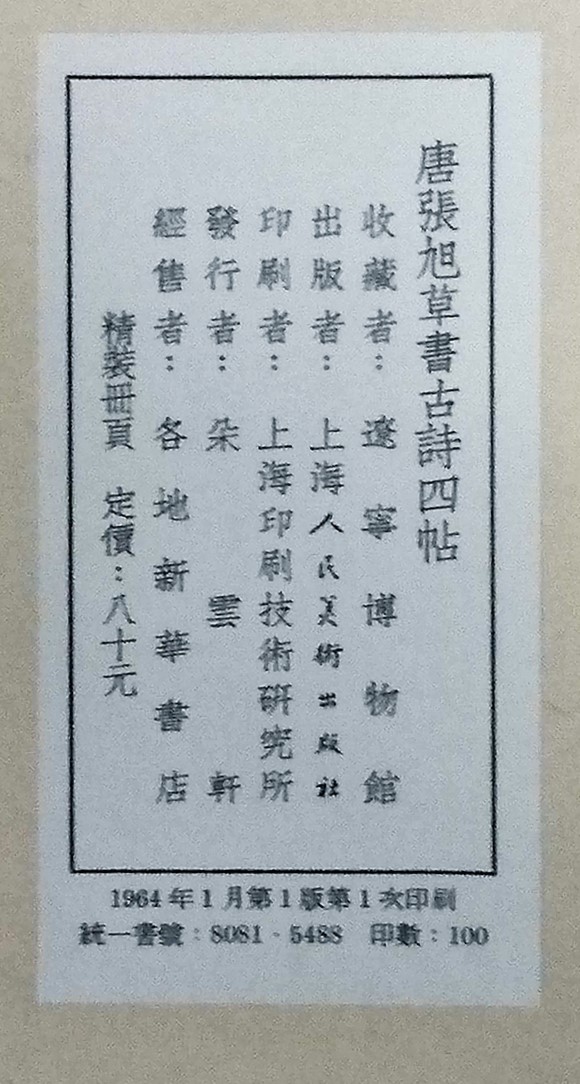 唐張旭草書古詩四帖
收藏者：遼寧博物館
出版者：上海人民美術出版社
印刷者：上海印刷技術研究所
發行者：朵雲軒
經售者：各地新華書店
精裝冊頁 定價：八十元
1964年1月第1版第1次印刷
統一書號：8081·5488 印數：100